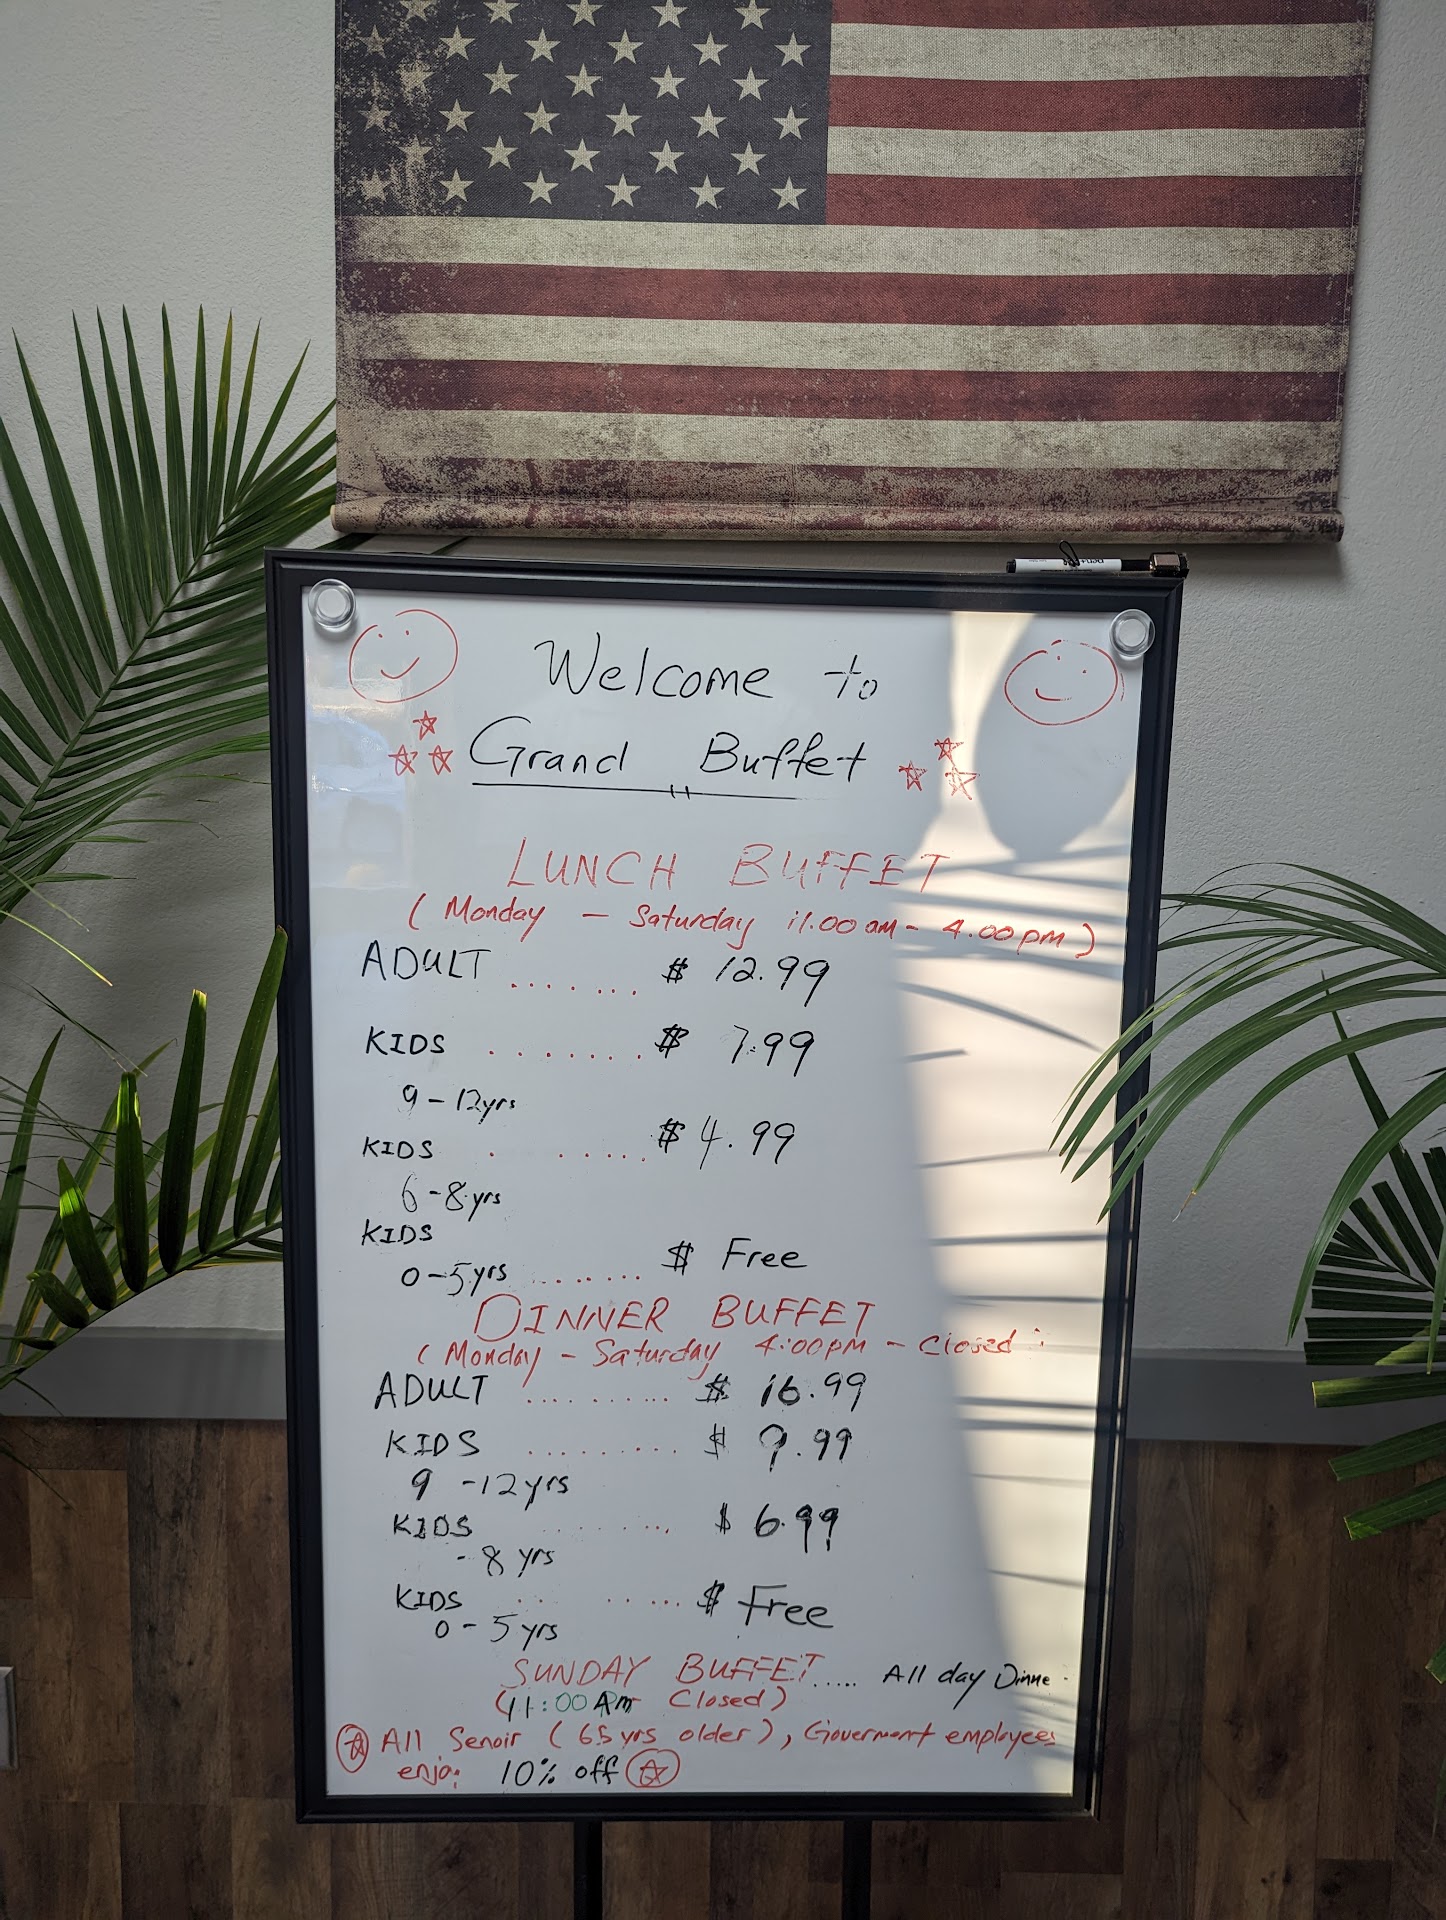 Welcome to
Grand Buffet
LUNCH BUFFET
( Monday - Saturday 11.00 am - 4.00 pm )
ADULT ....... $ 12.99
KIDS ....... $ 7.99
9 - 12 yrs
KIDS . ..... $ 4.99
6 - 8 yrs
KIDS
0 - 5 yrs ........ $ Free
DINNER BUFFET
( Monday - Saturday 4:00pm - Closed
ADULT .......... $ 16.99
KIDS ......... $ 9.99
9 - 12 yrs
KIDS ....... $ 6.99
- 8 yrs
KIDS .. ..... $ Free
0 - 5 yrs
SUNDAY BUFFET..... All day Dinne
(11:00 Am Closed)
All Senoir ( 65 yrs older ), Goverment employees
enjo 10% off